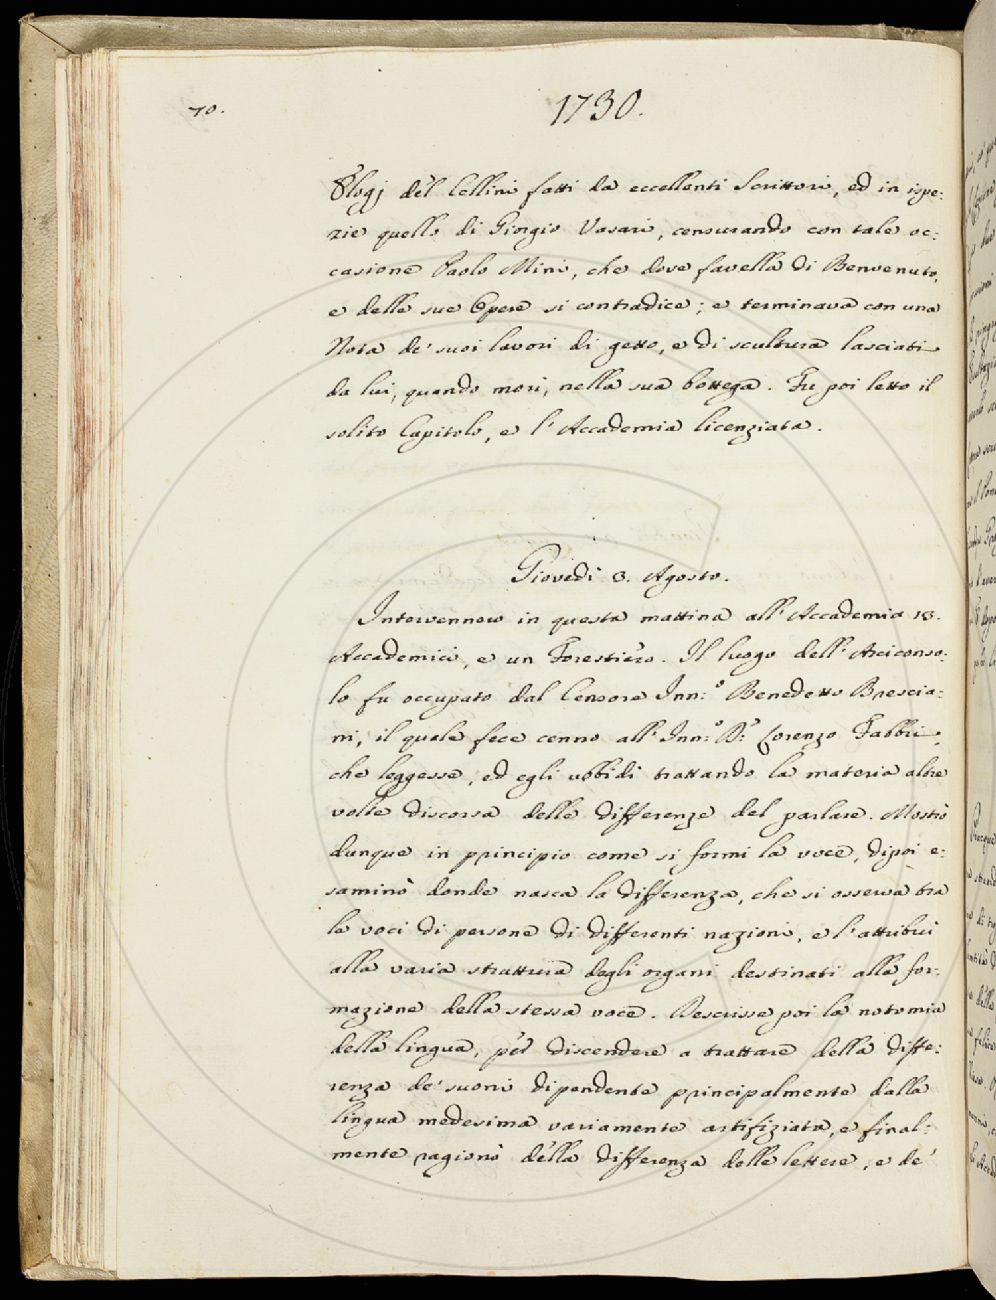 70.
1730.
Elogj del Cellini fatti da eccellenti Scrittori, ed in ispe:
zie quello di Giorgio Vasari, censurando con tale oc:
casione Paolo Mini, che dove favella di Benvenuto,
e delle sue Opere si contradice; e terminava con una
Nota de' suoi lavori di getto, e di scultura lasciati
da lui, quando morì, nella sua bottega. Fu poi letto il
solito Capitolo, e l'Accademia licenziata.
Giovedì 3. Agosto.
Intervennero in questa mattina all'Accademia 13.
Accademici, e un Forestiero. Il luogo dell'Arciconso:
lo fu occupato dal Censore Inn:o Benedetto Brescia:
ni, il quale fece cenno all'Inn:o D:e Lorenzo Fabbri,
che leggesse, ed egli ubbidì trattando la materia altre
volte discorsa delle differenze del parlare. Mostrò
dunque in principio come si formi la voce, dipoi e:
saminò donde nasca la differenza, che si osserva tra
le voci di persone di differenti nazioni, e l'attribuì
alla varia struttura degli organi destinati alla for:
mazione della stessa voce. Descrisse poi la notomia
della lingua, per discendere a trattare della diffe:
renza de' suoni dipendente principalmente dalla
lingua medesima variamente artifiziata, e final:
mente ragionò della differenza delle lettere, e de'